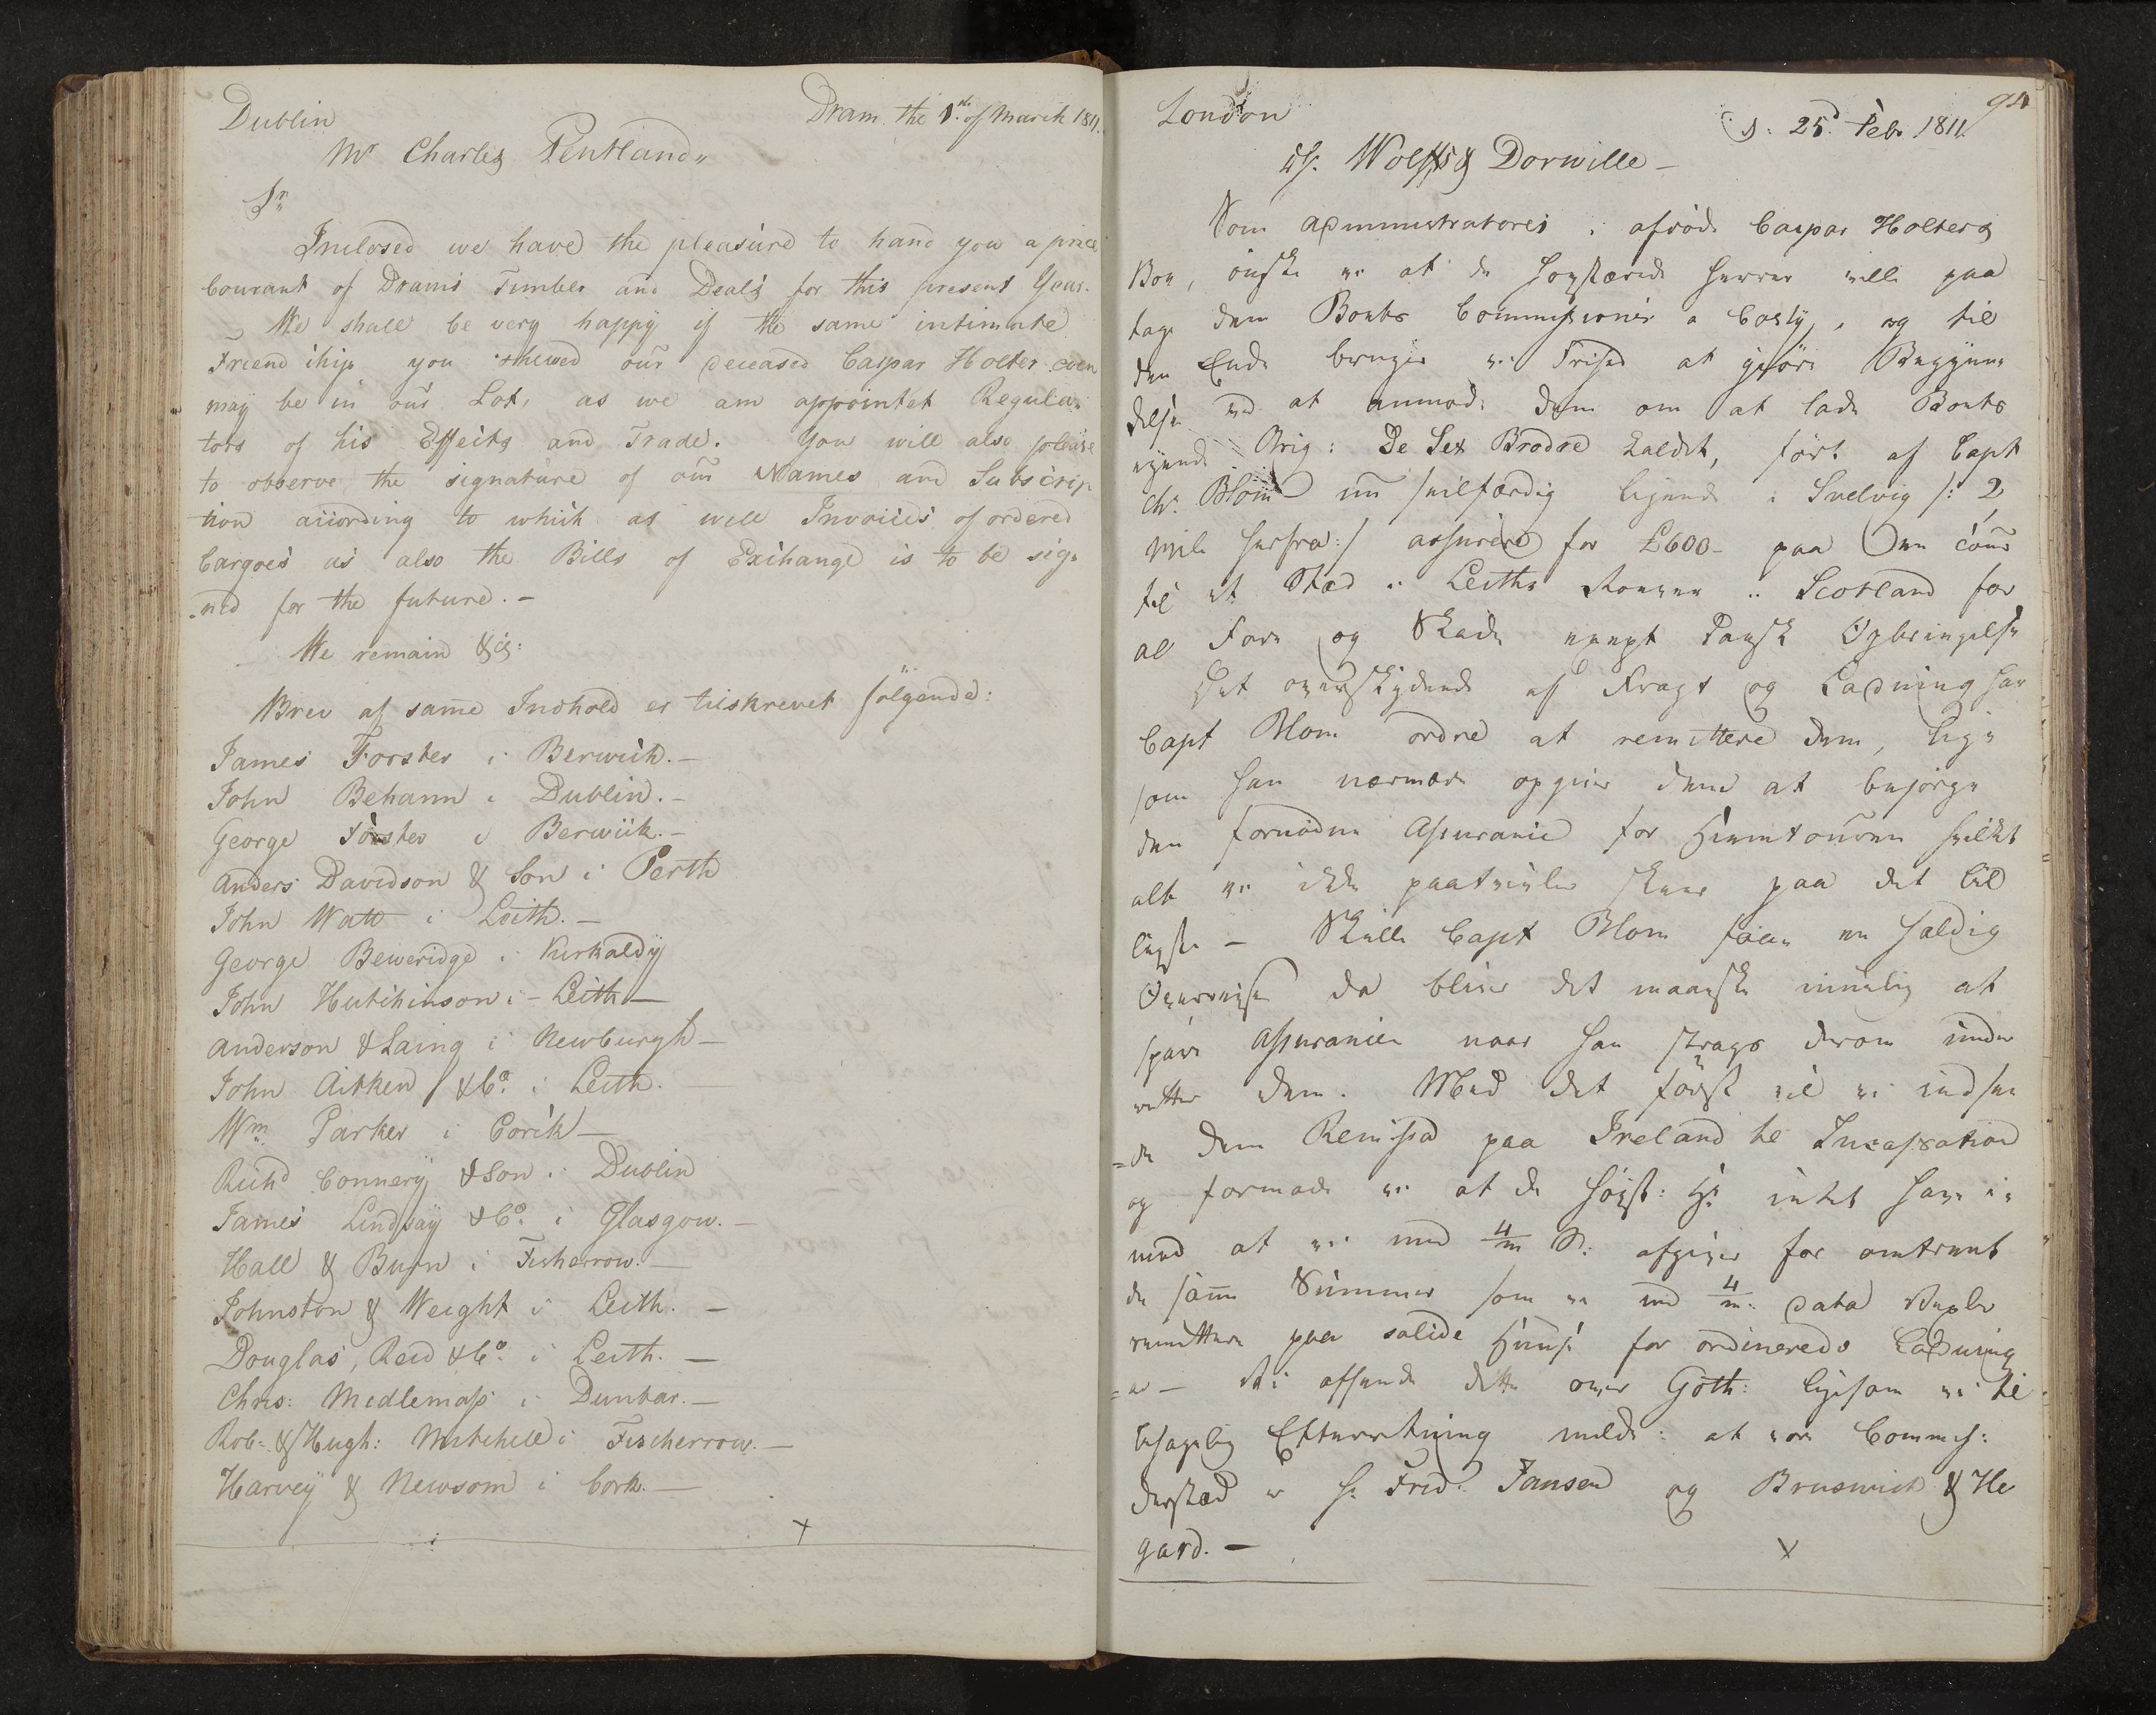 Dublin
Dram. the 1st of March 1811.
Mr Charles Pentland,,
Sr
Inclosed we have the pleasure to hand you a price
Courant of Drams Timber and Deals for this present Year.
We shall be very happy if the same intimate
Friendship you shewed our deceased Caspar Holter even
may be in our Lot, as we am appointet Regula-
tors of his Effects and Trade. You will also please
to observe the signature of our Names and Subscrip
tion according to which as well Invoices of ordered
Cargoes as also the Bills of Exchange is to be sig-
ned for the future. -
We remain &c:
Brev af samme Indhold er tilskrevet følgende:
James Forster i Berwick. -
John Behann i Dublin. -
George Forster i Berwick. -
Anders Davidson & Son i Perth
John Watt i Leith. -
George Beweridge i Kirkaldy
John Hutchinson i - Leith -
Anderson & Laing i Newburgh -
John Aitken & Co. i Leith.
Wm Parker i Corck -
Richd Connery & Son i Dublin
James Lindsay & Co. i Glasgow. -
Hall & Burn i Fisherrow. -
Johnston & Weight i Leith. -
Douglas, Reid & Co. i Leith. -
Chris: Medlemass i Dunbar. -
Rob: & Hugh: Mitchell i Fischerrow. -
Harvey & Newsom i Cork. -
x
94
London
D: 25d Febr 1811.
Hr. Wolffs & Dorwille -
Som Administratores i afdøde Caspar Holters
Boe, ønske vi at de Høystærede Herrer ville paa
tage dem Boets Commissioner a Costy, og til
den Ende bruger vi Frihed at giøre Begyn
delsen ved at anmode dem om at lade Boets
eyende Brig: De Sex Brødre kaldet, ført af Capt
Chr. Blom nu seilfærdig liggende i Svelvig /: 2
Mile herfra :/ assurere for £600 - paa Den
til et Stæd i Leiths Scotland for
al Fare og Skade Dansk Opbringelse
Det overskydende af Fragt og Ladning har
Capt Blom ordre at remittere dem, lige
som han nærmere opgiver dem at besørge
den fornødne Assurance for Hiemtouren hvilket
alt vi ikke paatvivler skeer paa det bil
ligste - Skulle Capt Blom faae en heldig
Overreise da bliver det maaske muelig at
spare Assurancen naar han strags derom under
retter dem. Med det første vil vi indsen
=de dem Remisse paa Ireland til Incassation
og formode vi at de Høyst: Hr intet have i=
mod at vi med 4/m D: afgiver for omtrent
de samme Summer som vi med 4/m data Vexler
remittere paa solide Huuse for ordinerede Ladning
=er - Vi afsende dette over Göth: ligesom vi til
behagelig Efterretning melde: at vore Commiss:
derstæd er Hr Fred: Jansen og Bruswich & He
gard. -
x